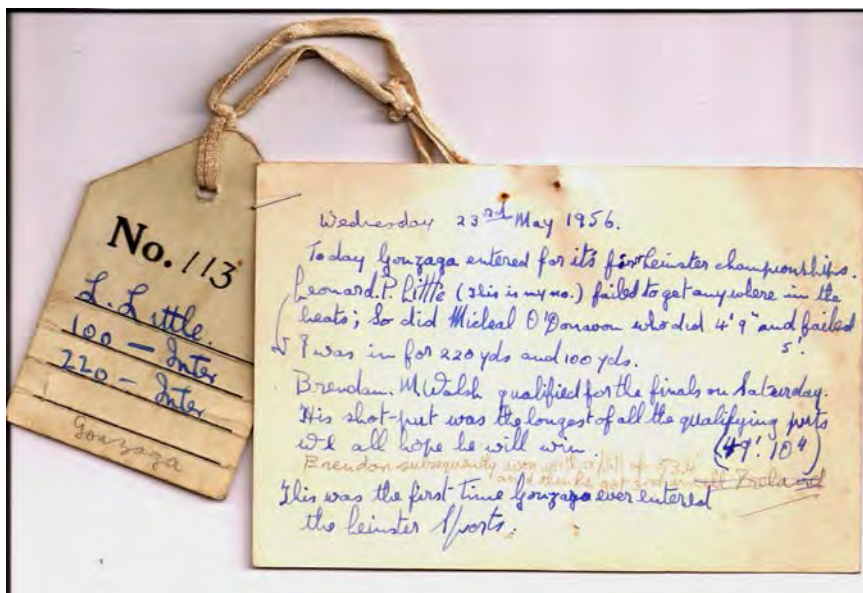 No. 113
L. Little.
100 — Inter
220 — Inter
Gonzaga
Wednesday 23rd May 1956.
Today Gonzaga entered for its first Leinster championships.
Leonard. P. Little (This is my no.) failed to get anywhere in the
heats; So did Micleal O'Donavon who did 4' 9" and failed
5'.
I was in for 220 yds and 100 yds.
Brendan. M. Walsh qualified for the finals on Saturday.
His shot-put was the longest of all the qualifying puts
We all hope he will win. (49'. 10")
Brendan subsequently won with a putt of 53.4"
and then he got 2nd in all Ireland
This was the first time Gonzaga ever entered
the Leinster Sports.